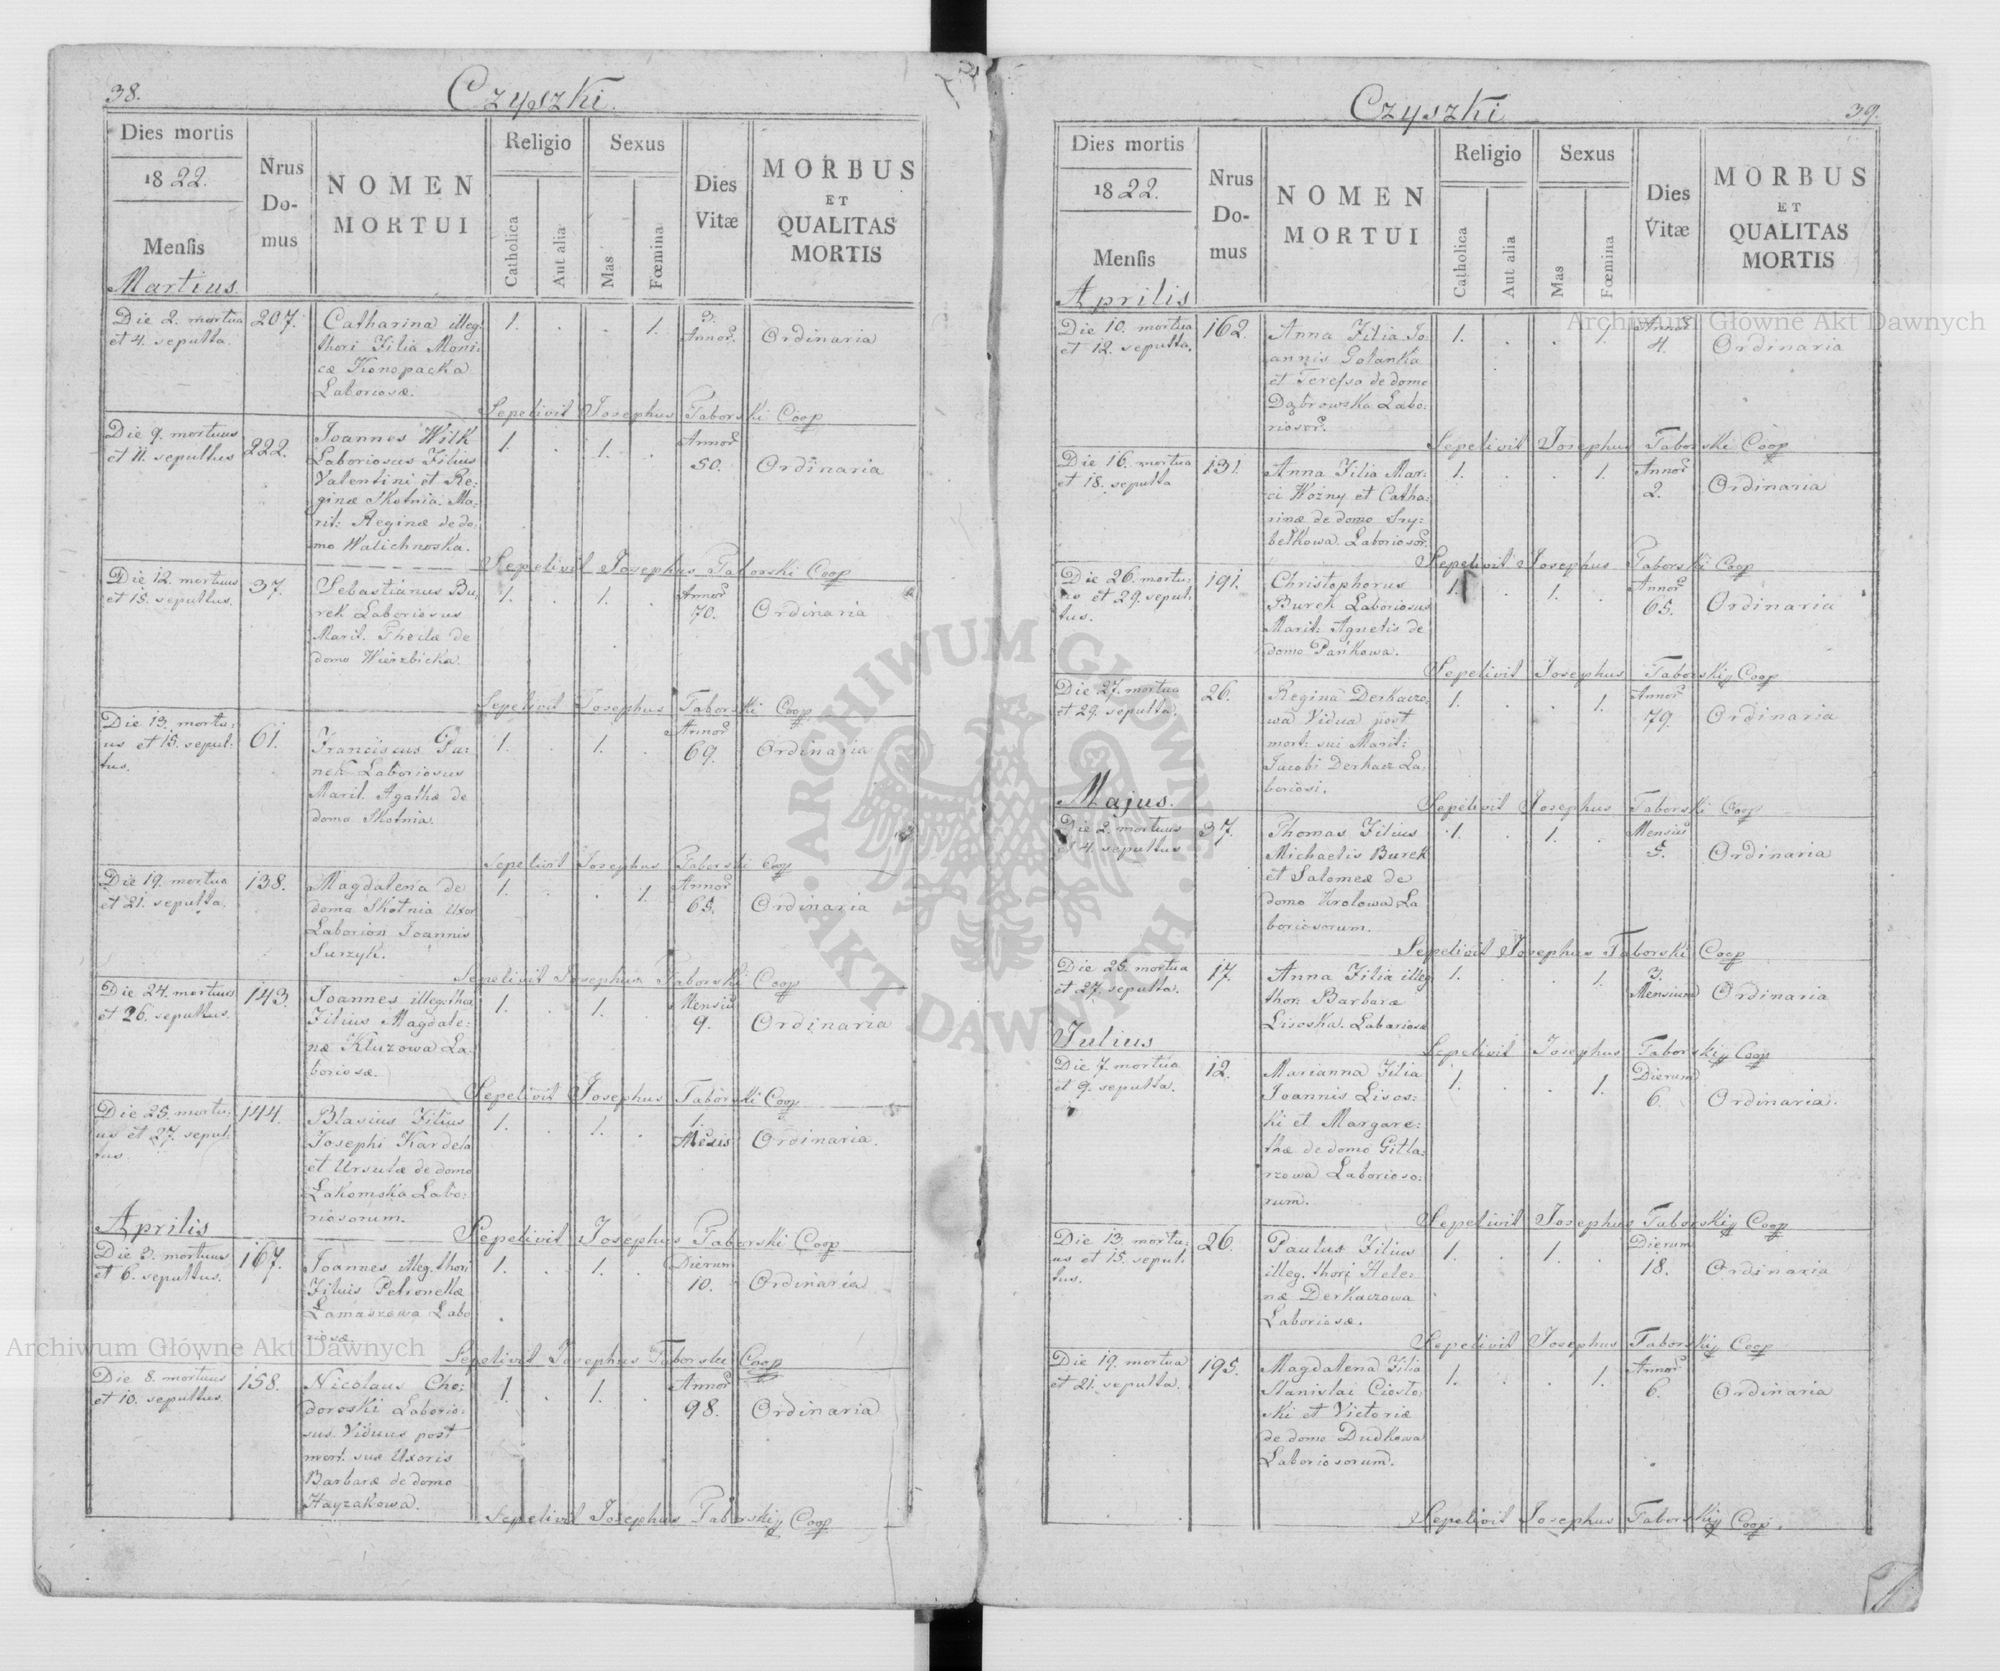 38.
Czyszki.
Dies mortis
1822.
Mensis
Martius
Nrus
Do-
mus
NOMEN
MORTUI
Religio
Catholica
Aut alia
Sexus
Mas
Fœmina
Dies
Vitæ
MORBUS
ET
QUALITAS
MORTIS
Die 2. mortua
et 4. sepulta.
207.
Catharina illeg:
thori Filia Moni:
cæ Konopacka
Laboriosæ.
1. . . 1.
3.
Annor.
Ordinaria
Sepelivit Josephus Taborski Coop
Die 9. mortuus
et 11. sepultus
222.
Joannes Wilk
Laboriosus Filius
Valentini et Re:
ginæ Skotnia. Ma:
rit: Reginæ de do:
mo Walichnoska.
1. . 1. .
Annor.
50.
Ordinaria
Sepelivit Josephus Taborski Coop
Die 12. mortuus
et 15. sepultus.
37.
Sebastianus Bu:
rek Laboriosus
Marit. Theclæ de
domo Wierzbicka.
1. . 1. .
Annor.
70.
Ordinaria
Sepelivit Josephus Taborski Coop
Die 13. mortu:
us et 15. sepul:
tus.
61.
Franciscus Pa:
nek Laboriosus
Marit. Agathæ de
domo Skotnia.
1. . 1. .
Annor.
69.
Ordinaria
Sepelivit Josephus Taborski Coop
Die 19. mortua
et 21. sepulta.
138.
Magdalena de
domo Skotnia Uxor
Laborion Joannis
Surzyk.
1. . . 1.
Annor.
65.
Ordinaria
Sepelivit Josephus Taborski Coop
Die 24. mortuus
et 26. sepultus.
143.
Joannes illeg: thori
Filius Magdale:
næ Kluzowa La:
boriosæ.
1. . 1. .
Mensiu
9.
Ordinaria
Sepelivit Josephus Taborski Coop
Die 25. mortu:
us et 27. sepul:
tus.
144.
Blasius Filius
Josephi Kardela
et Ursulæ de domo
Łakomska Labo:
riosorum.
1. . 1. .
1.
Mesis
Ordinaria.
Sepelivit Josephus Taborski Coop
Aprilis
Die 3. mortuus
et 6. sepultus.
167.
Joannes illeg. thori
Filius Petronellæ
Łamaszewa Labo
riosæ.
1. . 1. .
Dierum
10.
Ordinaria
Sepelivit Josephus Taborski Coop
Die 8. mortuus
et 10. sepultus.
158.
Nicolaus Cho:
doroski Laborio:
sus. Viduus post
mort. suæ Uxoris
Barbaræ de domo
Hayzakowa.
1. . 1. .
Annor.
98.
Ordinaria
Sepelivit Josephus Taborskij Coop
39.
Czyszki
Dies mortis
1822.
Mensis
Aprilis
Nrus
Do-
mus
NOMEN
MORTUI
Religio
Catholica
Aut alia
Sexus
Mas
Fœmina
Dies
Vitæ
MORBUS
ET
QUALITAS
MORTIS
Die 10. mortua
et 12. sepulta.
162.
Anna Filia Jo:
annis Golanka
et Teressa de domo
Dąbrowska Labo:
riosor.
1. . . 1.
Annor.
4.
Ordinaria
Sepelivit Josephus Taborski Coop
Die 16. mortua
et 18. sepulta
131.
Anna Filia Mar:
ci Woźny et Catha:
rinæ de domo Sry:
belkowa. Laboriosor.
1. . . 1.
Annor.
2.
Ordinaria
Sepelivit Josephus Taborski Coop
Die 26. mortu:
us et 29. sepul:
tus.
191.
Christophorus
Burek Laboriosus
Marit: Agnetis de
domo Pańkowa.
1. . 1. .
Annor.
65.
Ordinaria
Sepelivit Josephus Taborskij Coop
Die 27. mortua
et 29. sepulta.
26.
Regina Derkaczo
wa Vidua post
mort: sui Marit:
Jacobi Derkacz La:
boriosi.
1. . . 1.
Annor.
79.
Ordinaria
Sepelivit Josephus Taborski Coop
Majus.
Die 2. mortuus
et 4. sepultus
37.
Thomas Filius
Michaelis Burek
et Salomeæ de
domo Krolowa La
boriosorum.
1. . 1. .
Mensiu
5.
Ordinaria
Sepelivit Josephus Taborski Coop
Die 25. mortua
et 27. sepulta.
17.
Anna Filia illeg
thori Barbaræ
Lisoska. Laboriosæ
1. . . 1.
3.
Mensium
Ordinaria
Sepelivit Josephus Taborskij Coop
Julius
Die 7. mortua
et 9. sepulta.
12.
Marianna Filia
Joannis Lisos:
ki et Margare:
thæ de domo Gitla:
rzowa Laborioso:
rum.
1. . . 1.
Dierum
6.
Ordinaria.
Sepelivit Josephus Taborskij Coop
Die 13. mortu:
us et 15. sepul:
tus.
26.
Paulus Filius
illeg. thori Hele:
næ Derkaczowa
Laboriosæ.
1. . 1. .
Dierum
18.
Ordinaria
Sepelivit Josephus Taborskij Coop
Die 19. mortua
et 21. sepulta.
195.
Magdalena Filia
Stanislai Ciosto:
ski et Victoriæ
de domo Dudkowa
Laboriosorum.
1. . . 1.
Annor.
6.
Ordinaria
Sepelivit Josephus Taborskij Coop.
Archiwum Główne Akt Dawnych
Archiwum Główne Akt Dawnych
ARCHIWUM GŁÓWNE AKT DAWNYCH